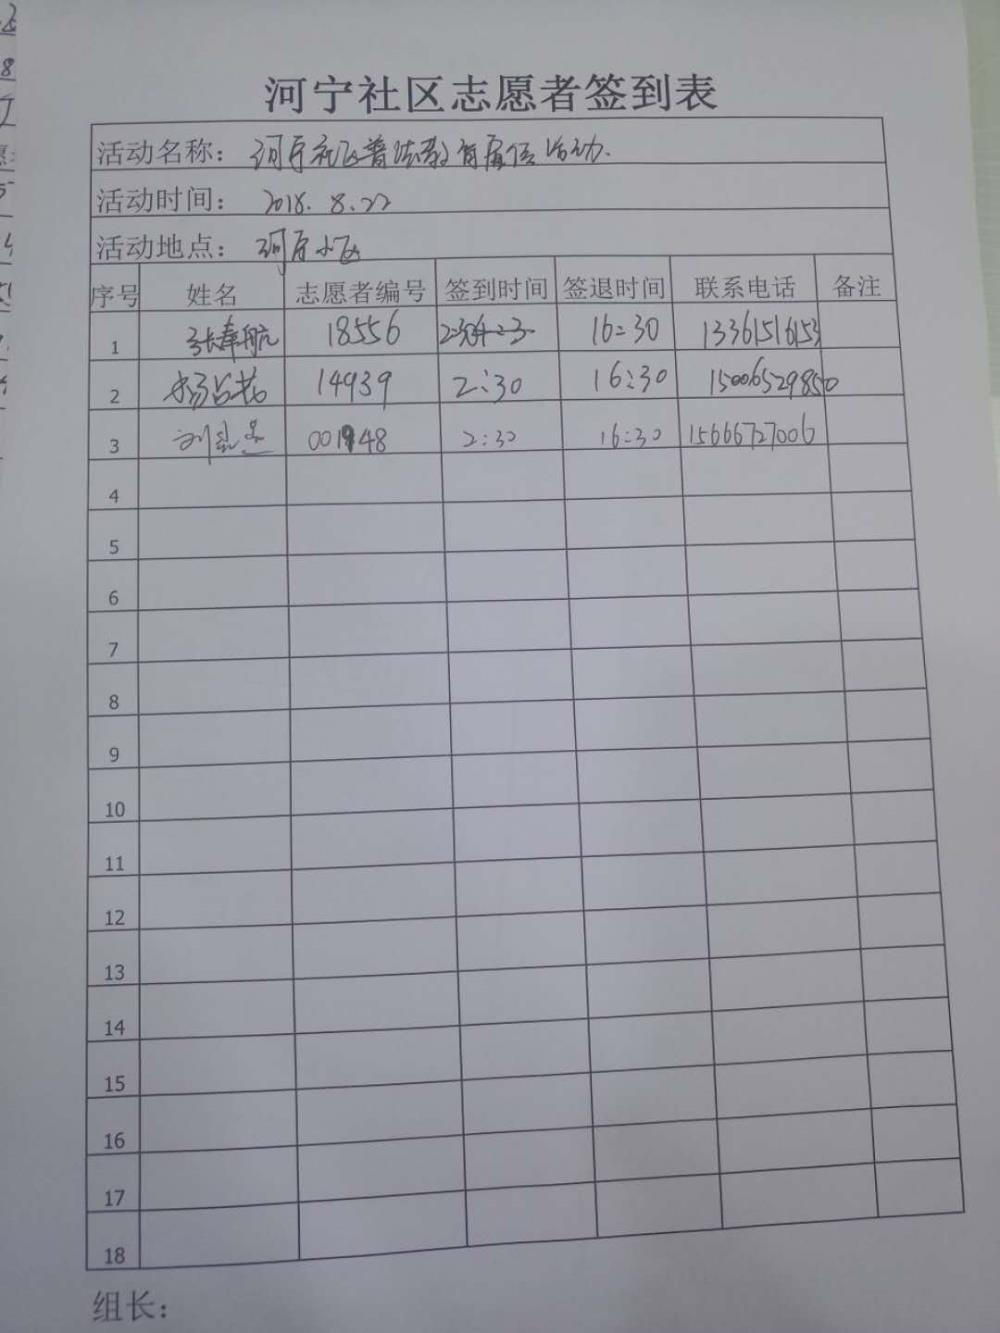 河宁社区志愿者签到表
活动名称: 河宁社区普法教育宣传活动.
活动时间: 2018.8.22
活动地点: 河宁小区
序号 姓名 志愿者编号 签到时间 签退时间 联系电话 备注
1 张奉航 18556 16:30 13361516153
2 杨 14939 2:30 16:30 15006529850
3 刘 001948 2:30 16:30 15666727006
4
5
6
7
8
9
10
11
12
13
14
15
16
17
18
组长: